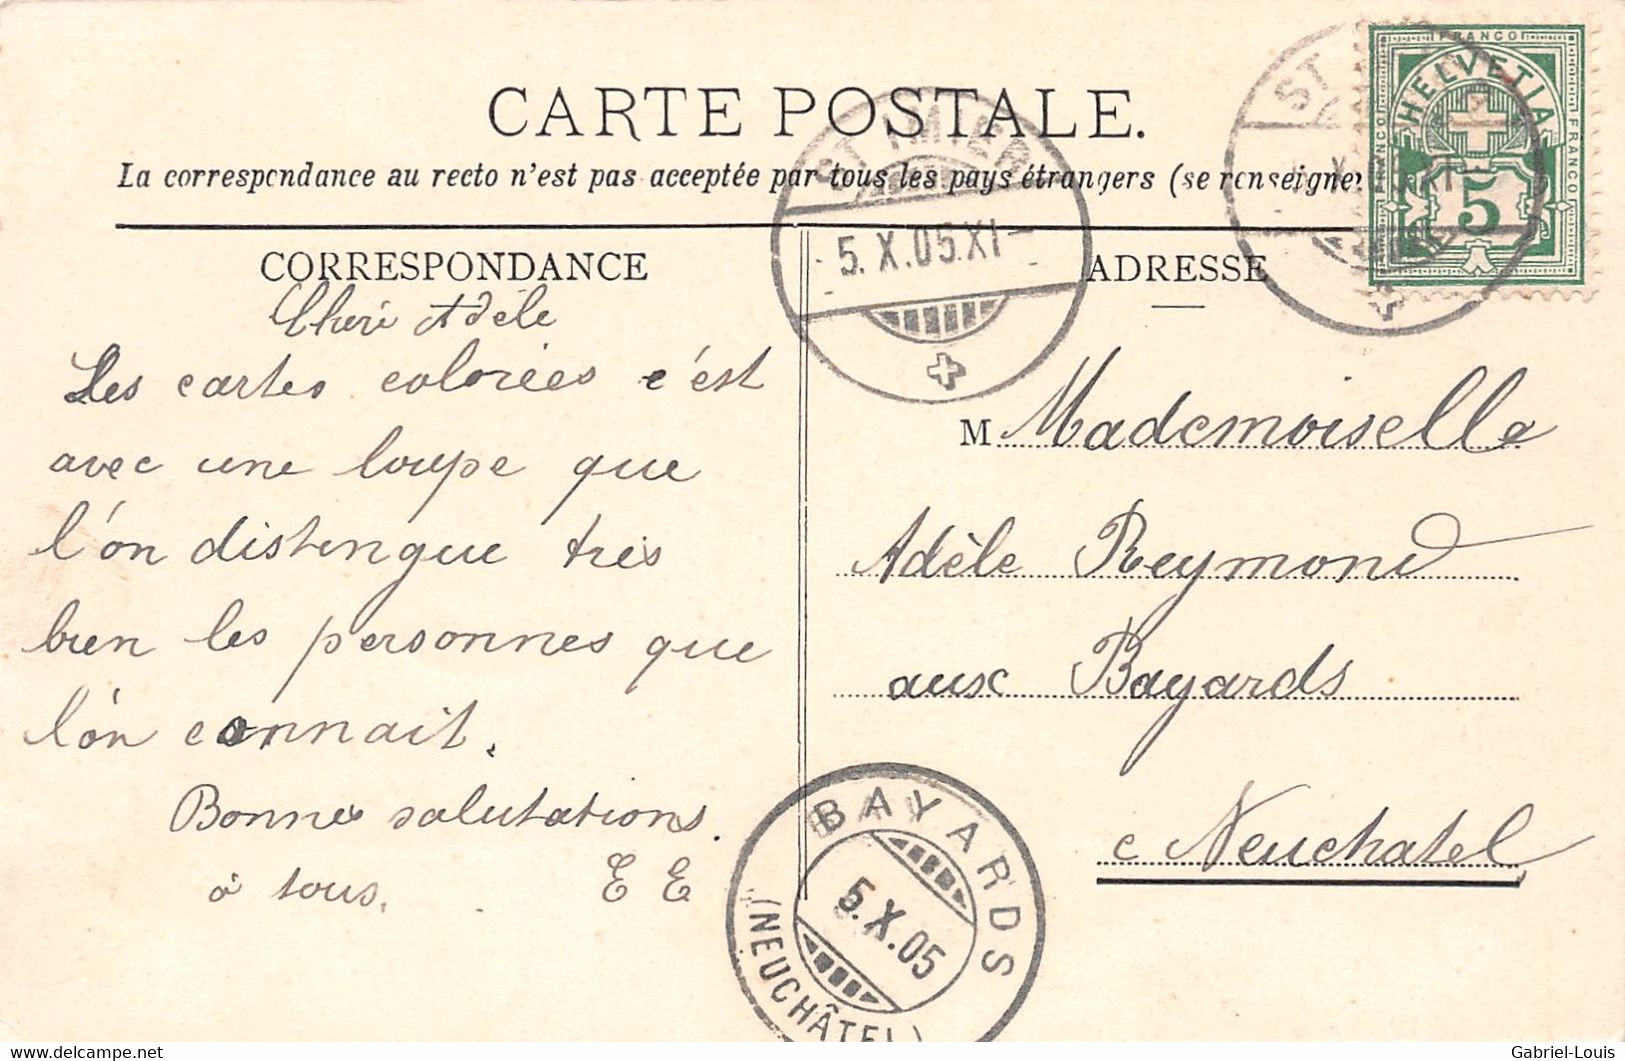 CARTE POSTALE.
La correspondance au recto n'est pas acceptée par tous les pays étrangers (se renseigner
CORRESPONDANCE
Chère Adèle
Les cartes coloriées c'est
avec une loupe que
l'on distingue très
bien les personnes que
l'on connait.
Bonnes salutations.
à tous. E E
ADRESSE
M Mademoiselle
Adèle Reymond
aux Bayards
c Neuchatel
FRANCO
HELVETIA
FRANCO
FRANCO
5
ST
ST IMIER
5.X.05.XI-
BAYARDS
5.X.05
(NEUCHÂTEL)
delcampe.net
Gabriel-Louis